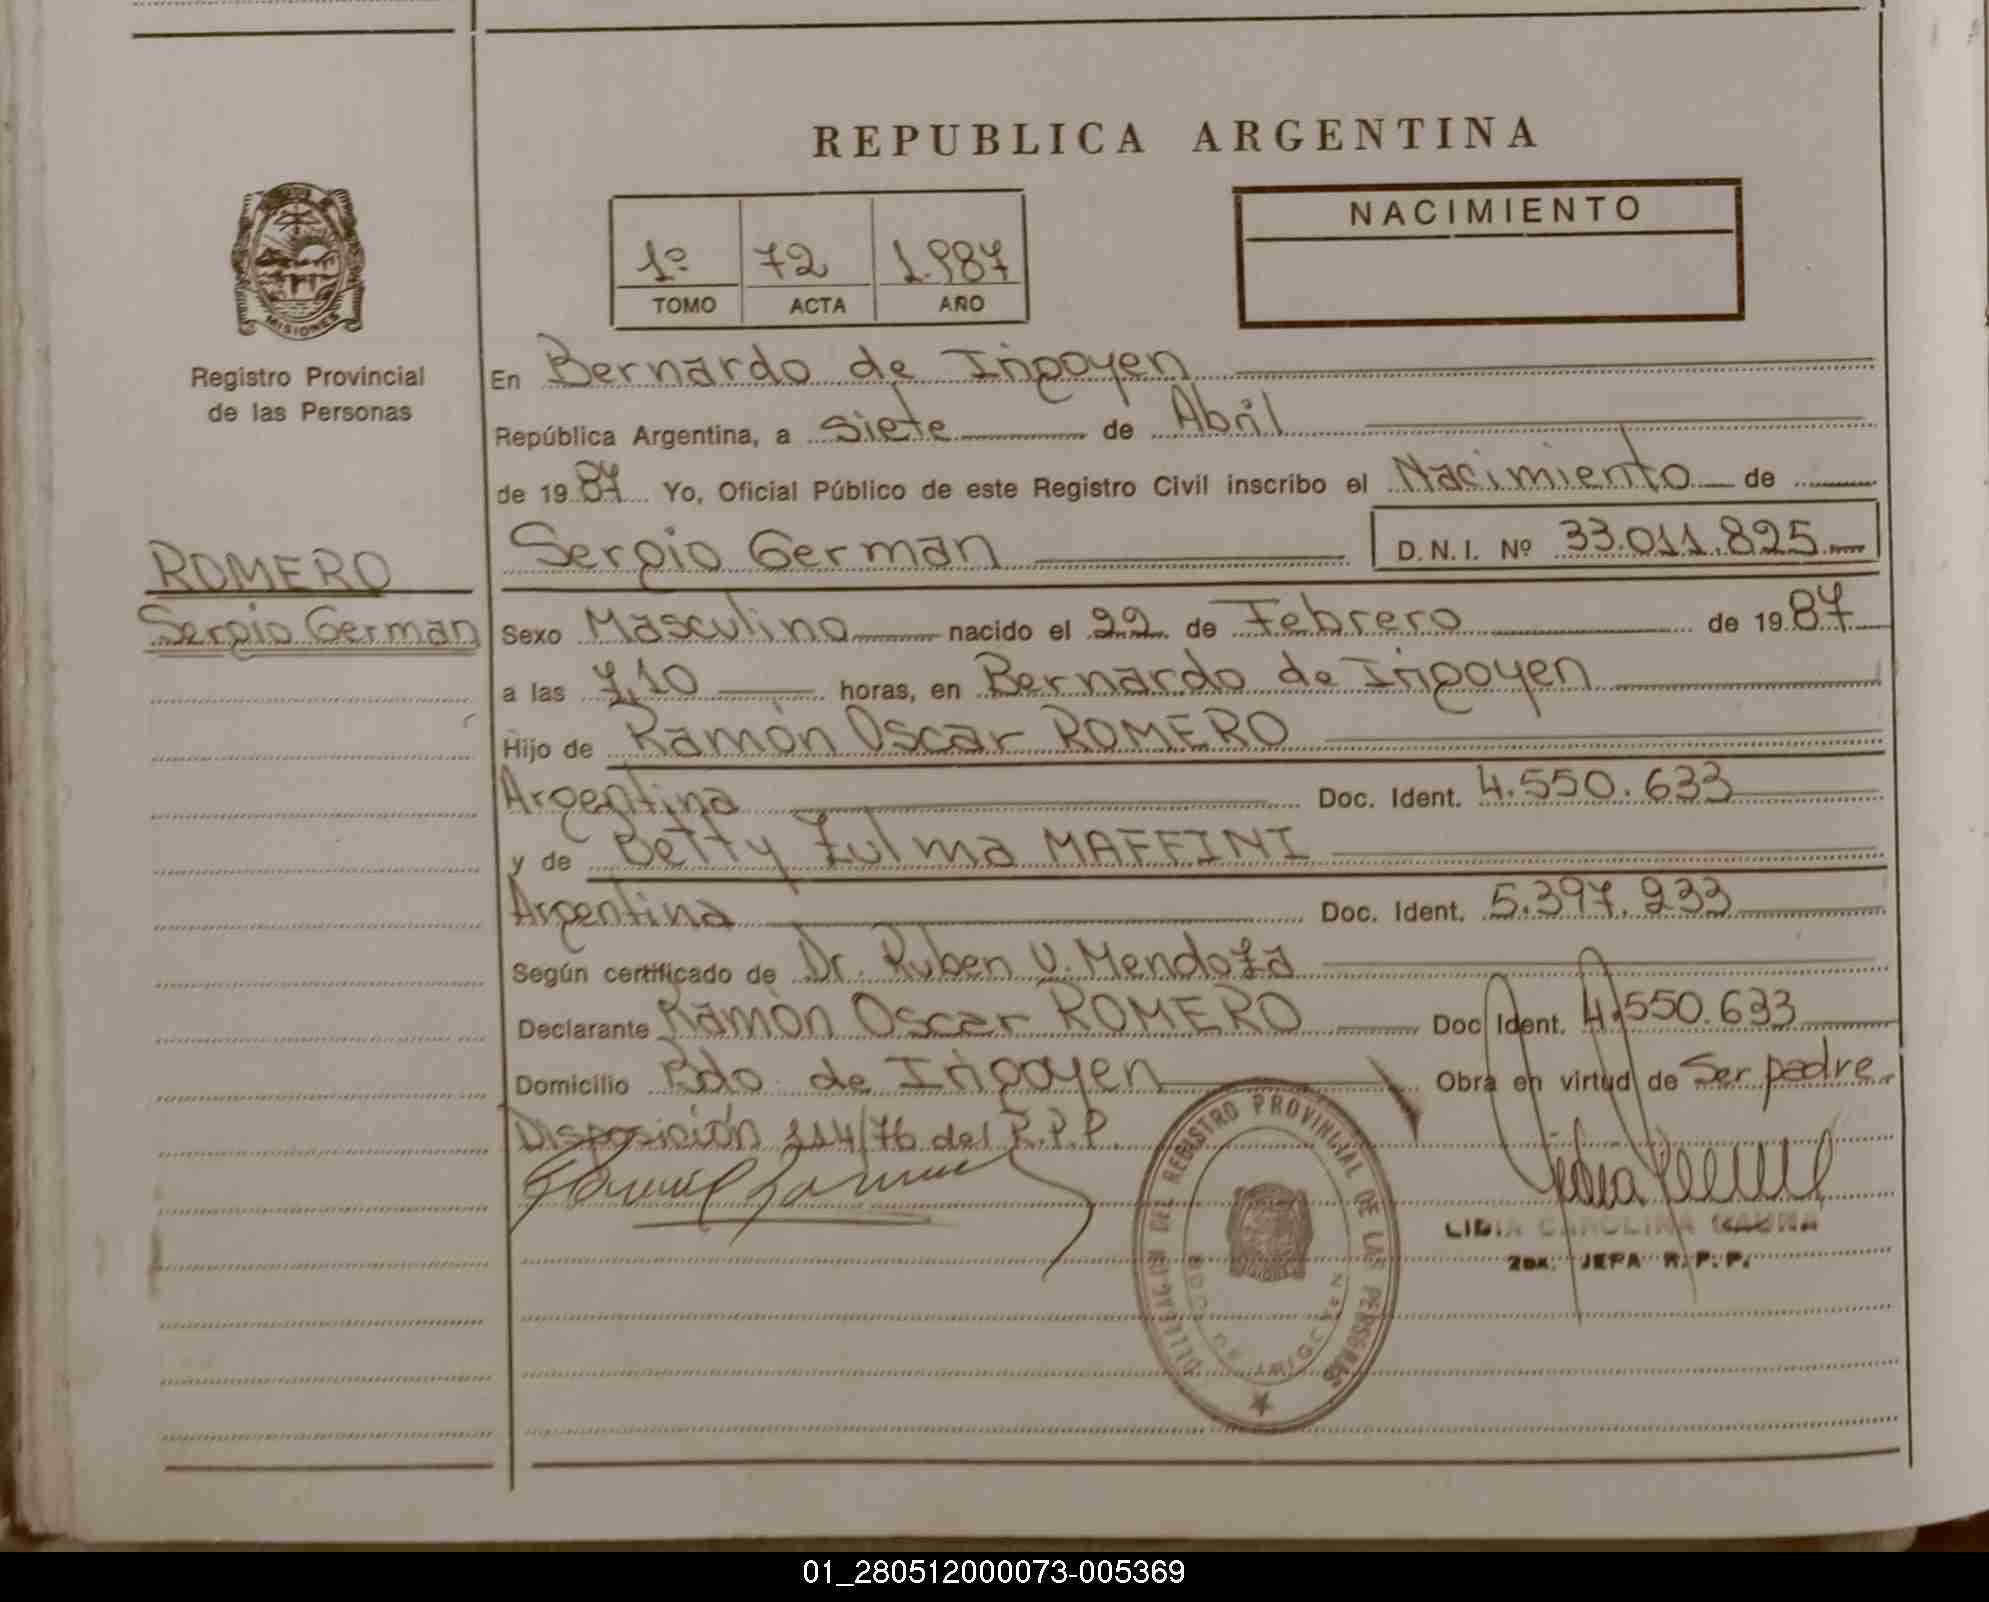 REPUBLICA ARGENTINA
NACIMIENTO
1º 72 1.987
TOMO ACTA AÑO
MISIONES
Registro Provincial
de las Personas
En Bernardo de Irigoyen
República Argentina, a siete de Abril
de 1987 Yo, Oficial Público de este Registro Civil inscribo el Nacimiento de
ROMERO
Sergio German
Sergio German D.N.I. Nº 33.011.825
Sexo Masculino nacido el 22 de Febrero de 1987
a las 7,10 horas, en Bernardo de Irigoyen
Hijo de Ramón Oscar ROMERO
Argentina Doc. Ident. 4.550.633
y de Betty Zulma MAFFINI
Argentina Doc. Ident. 5.397.233
Según certificado de Dr. Ruben V. Mendoza
Declarante Ramón Oscar ROMERO Doc. Ident. 4.550.633
Domicilio Bdo. de Irigoyen Obra en virtud de Ser padre
Disposición 114/76 del R.P.P.
DELEGACION DEL REGISTRO PROVINCIAL DE LAS PERSONAS
BDO. DE IRIGOYEN
LIDIA CAROLINA
JEFA R.P.P.
01_280512000073-005369